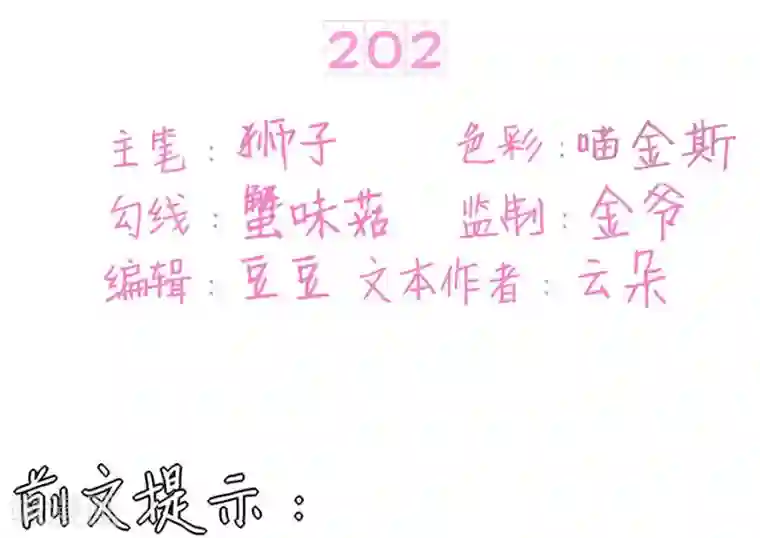 202
主笔：狮子 色彩：喵金斯
勾线：蟹味菇 监制：金爷
编辑：豆豆 文本作者：云朵
前文提示：